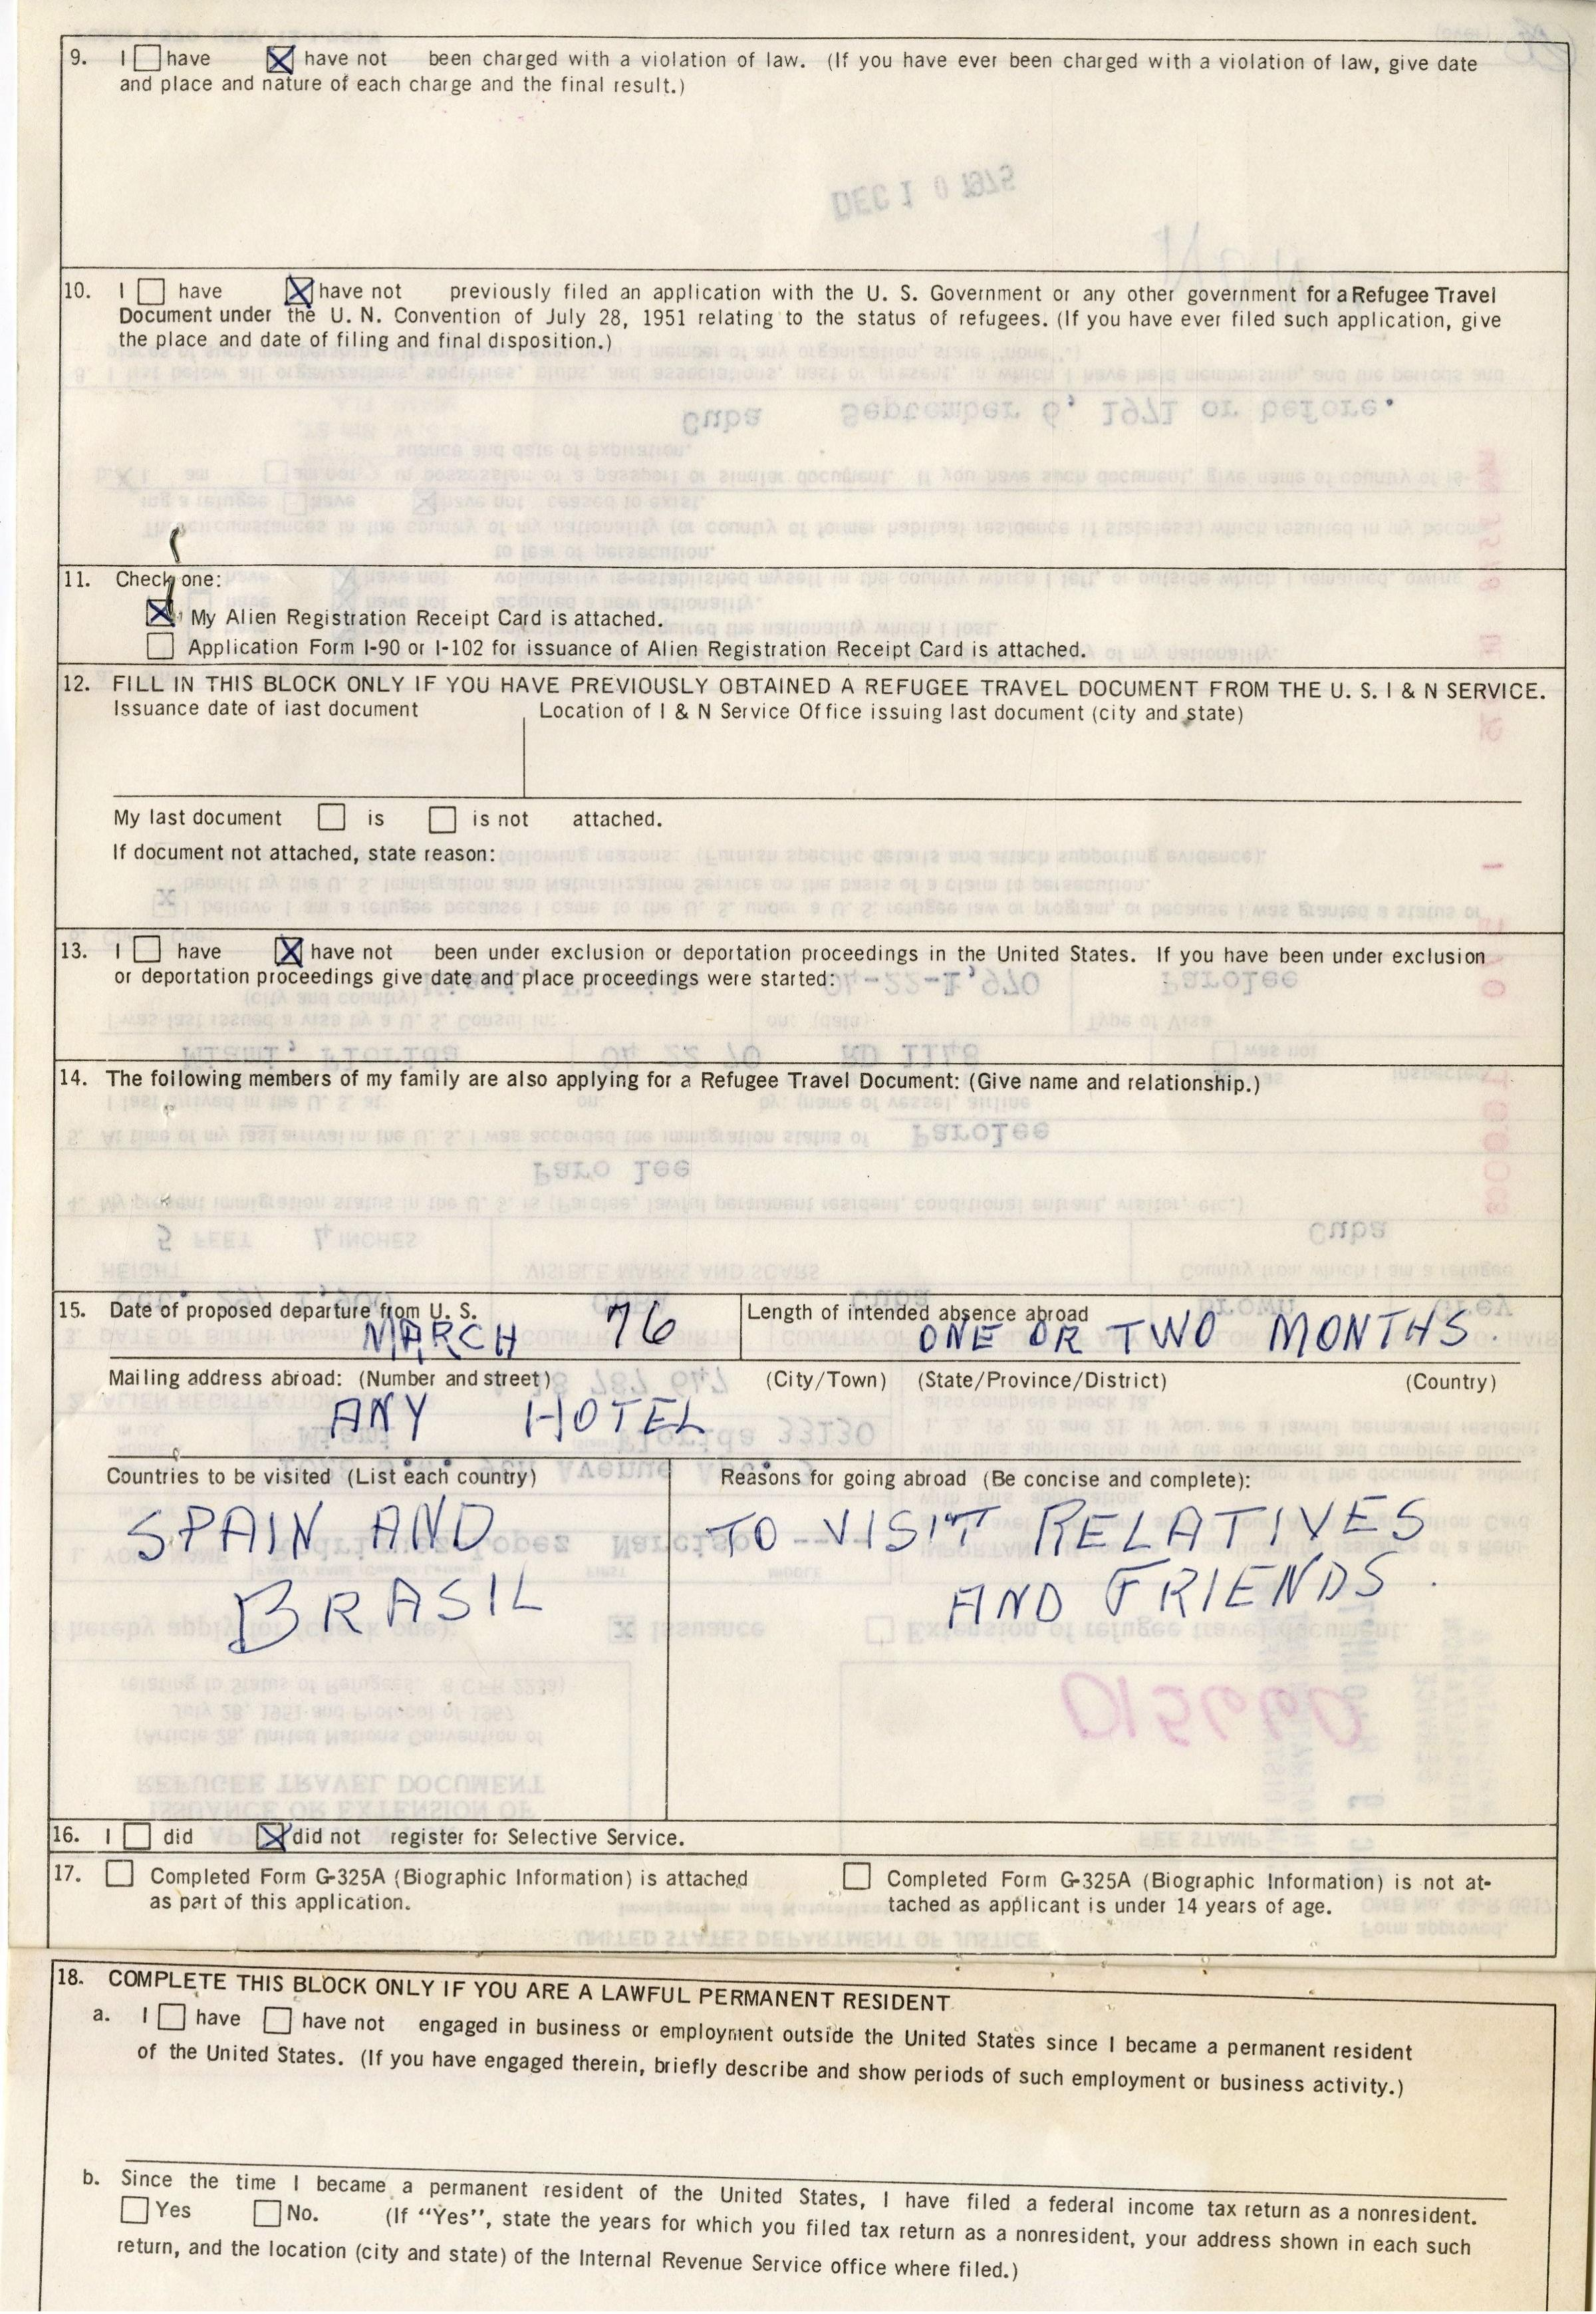 9. I ☐ have ☒ have not been charged with a violation of law. (If you have ever been charged with a violation of law, give date
and place and nature of each charge and the final result.)
DEC 10 1975
10. I ☐ have ☒ have not previously filed an application with the U. S. Government or any other government for a Refugee Travel
Document under the U. N. Convention of July 28, 1951 relating to the status of refugees. (If you have ever filed such application, give
the place and date of filing and final disposition.)
11. Check one:
☒ My Alien Registration Receipt Card is attached.
☐ Application Form I-90 or I-102 for issuance of Alien Registration Receipt Card is attached.
12. FILL IN THIS BLOCK ONLY IF YOU HAVE PREVIOUSLY OBTAINED A REFUGEE TRAVEL DOCUMENT FROM THE U. S. I & N SERVICE.
Issuance date of last document Location of I & N Service Office issuing last document (city and state)
My last document ☐ is ☐ is not attached.
If document not attached, state reason:
13. I ☐ have ☒ have not been under exclusion or deportation proceedings in the United States. If you have been under exclusion
or deportation proceedings give date and place proceedings were started:
14. The following members of my family are also applying for a Refugee Travel Document: (Give name and relationship.)
15. Date of proposed departure from U. S. Length of intended absence abroad
MARCH 76 ONE OR TWO MONTHS.
Mailing address abroad: (Number and street) (City/Town) (State/Province/District) (Country)
ANY HOTEL
Countries to be visited (List each country) Reasons for going abroad (Be concise and complete):
SPAIN AND TO VISIT RELATIVES
BRASIL AND FRIENDS.
16. I ☐ did ☒ did not register for Selective Service.
17. ☐ Completed Form G-325A (Biographic Information) is attached ☐ Completed Form G-325A (Biographic Information) is not at-
as part of this application. tached as applicant is under 14 years of age.
18. COMPLETE THIS BLOCK ONLY IF YOU ARE A LAWFUL PERMANENT RESIDENT
a. I ☐ have ☐ have not engaged in business or employment outside the United States since I became a permanent resident
of the United States. (If you have engaged therein, briefly describe and show periods of such employment or business activity.)
b. Since the time I became a permanent resident of the United States, I have filed a federal income tax return as a nonresident.
☐ Yes ☐ No. (If “Yes”, state the years for which you filed tax return as a nonresident, your address shown in each such
return, and the location (city and state) of the Internal Revenue Service office where filed.)